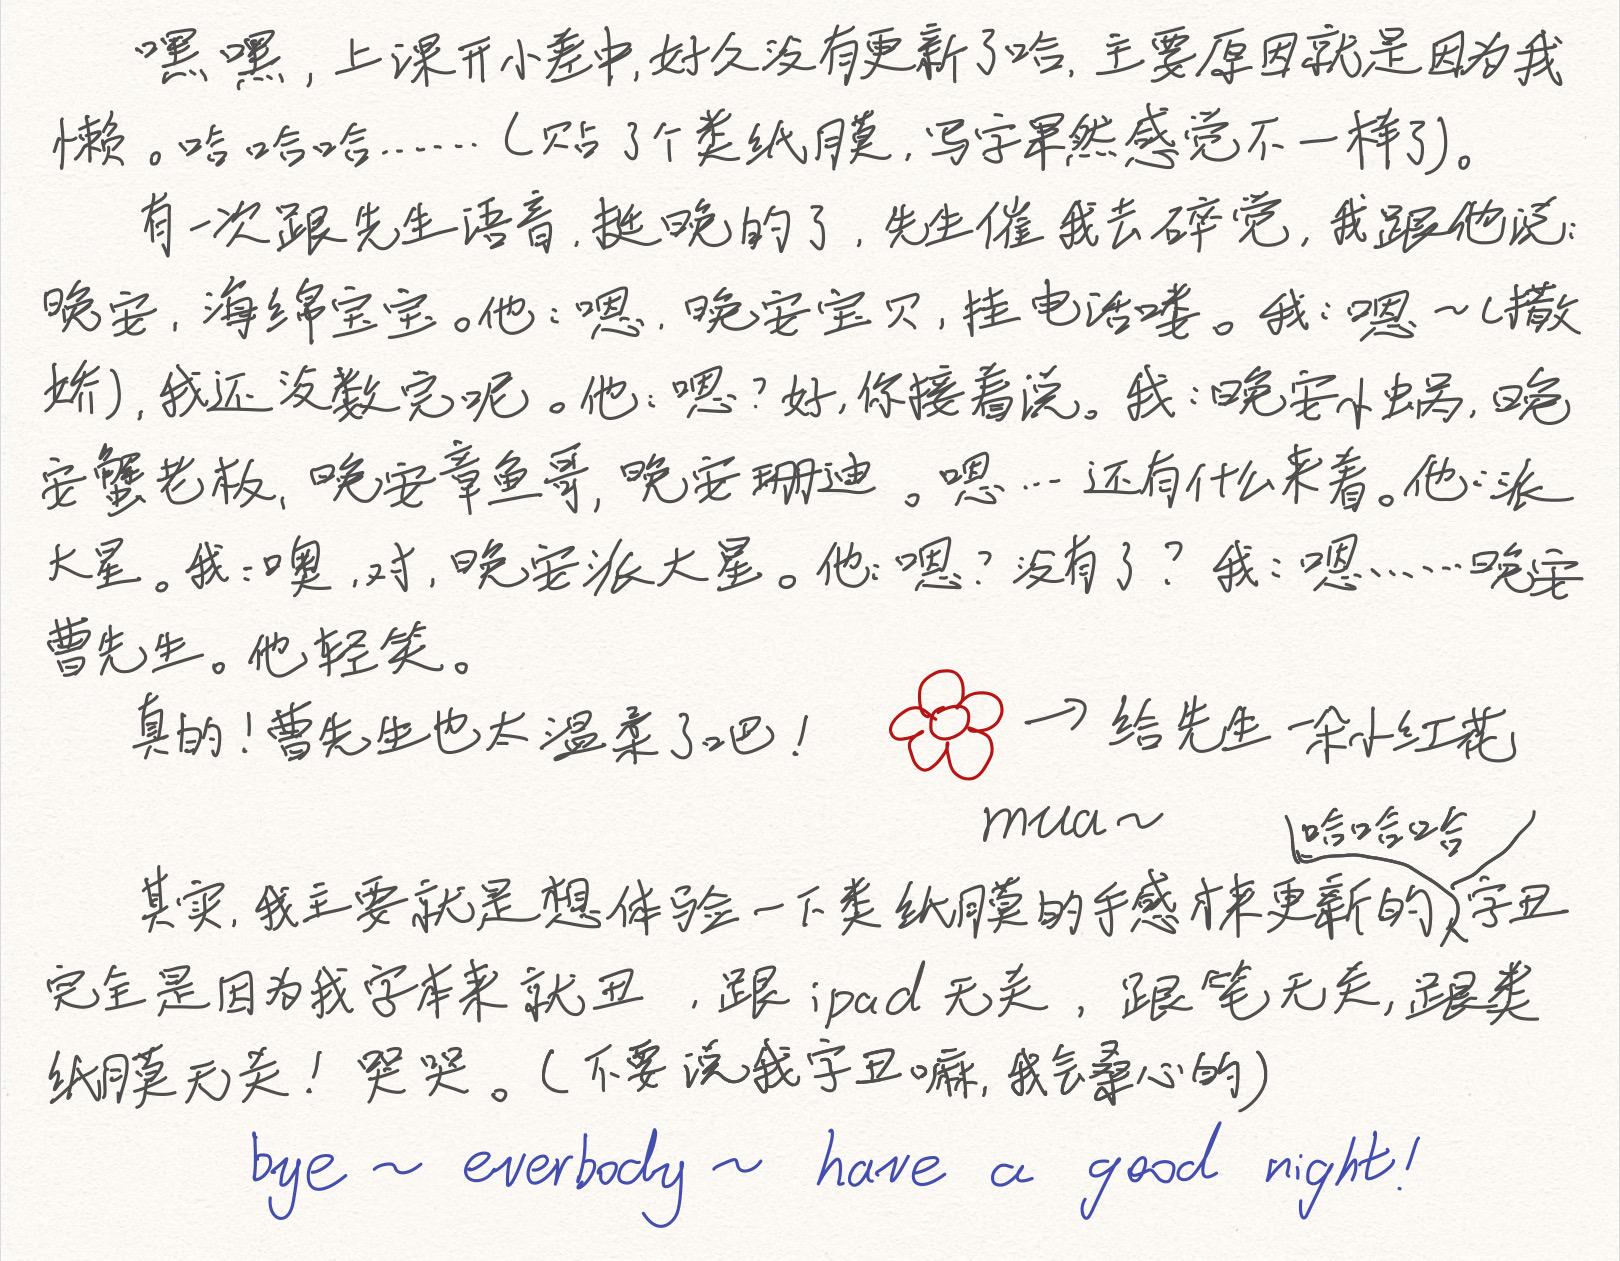 嘿嘿,上课开小差中,好久没有更新了哈,主要原因就是因为我
懒。哈哈哈……(贴了个类纸膜,写字果然感觉不一样了)。
有一次跟先生语音,挺晚的了,先生催我去碎觉,我跟他说:
晚安,海绵宝宝。他:嗯,晚安宝贝,挂电话喽。我:嗯~(撒
娇),我还没数完呢。他:嗯?好,你接着说。我:晚安小蜗,晚
安蟹老板,晚安章鱼哥,晚安珊迪。嗯…还有什么来着。他:派
大星。我:噢,对,晚安派大星。他:嗯?没有了?我:嗯……晚安
曹先生。他轻笑。
真的!曹先生也太温柔了吧! → 给先生一朵小红花
mua~ 哈哈哈
其实,我主要就是想体验一下类纸膜的手感才来更新的,字丑
完全是因为我字本来就丑,跟ipad无关,跟笔无关,跟类
纸膜无关!哭哭。(不要说我字丑嘛,我会桑心的)
bye~ everbody~ have a good night!